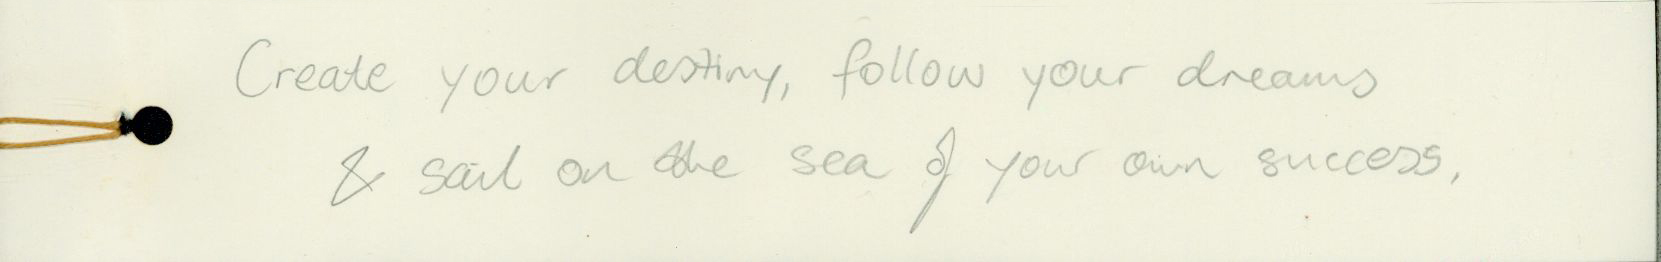 Create your destiny, follow your dreams
& sail on the sea of your own success,